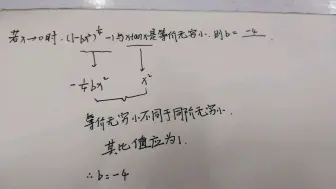 若x→0时,(1-bx²)^¼ -1与xsinx是等价无穷小.则b= -4
-¼bx² x²
等价无穷小不同于同阶无穷小.
其比值应为1.
∴b=-4